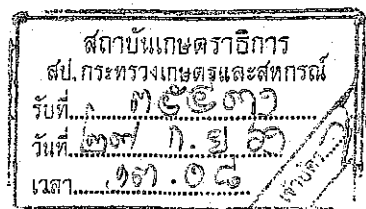 สถาบันเกษตราธิการ
สป. กระทรวงเกษตรและสหกรณ์
รับที่
วันที่ ๒๗ ก.ย ๖๓
เวลา ๑๓.๐๘